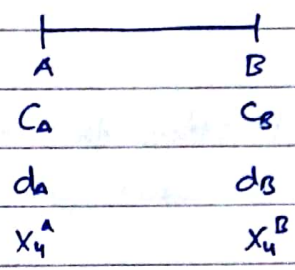 A B
C_A C_B
d_A d_B
X_4^A X_4^B